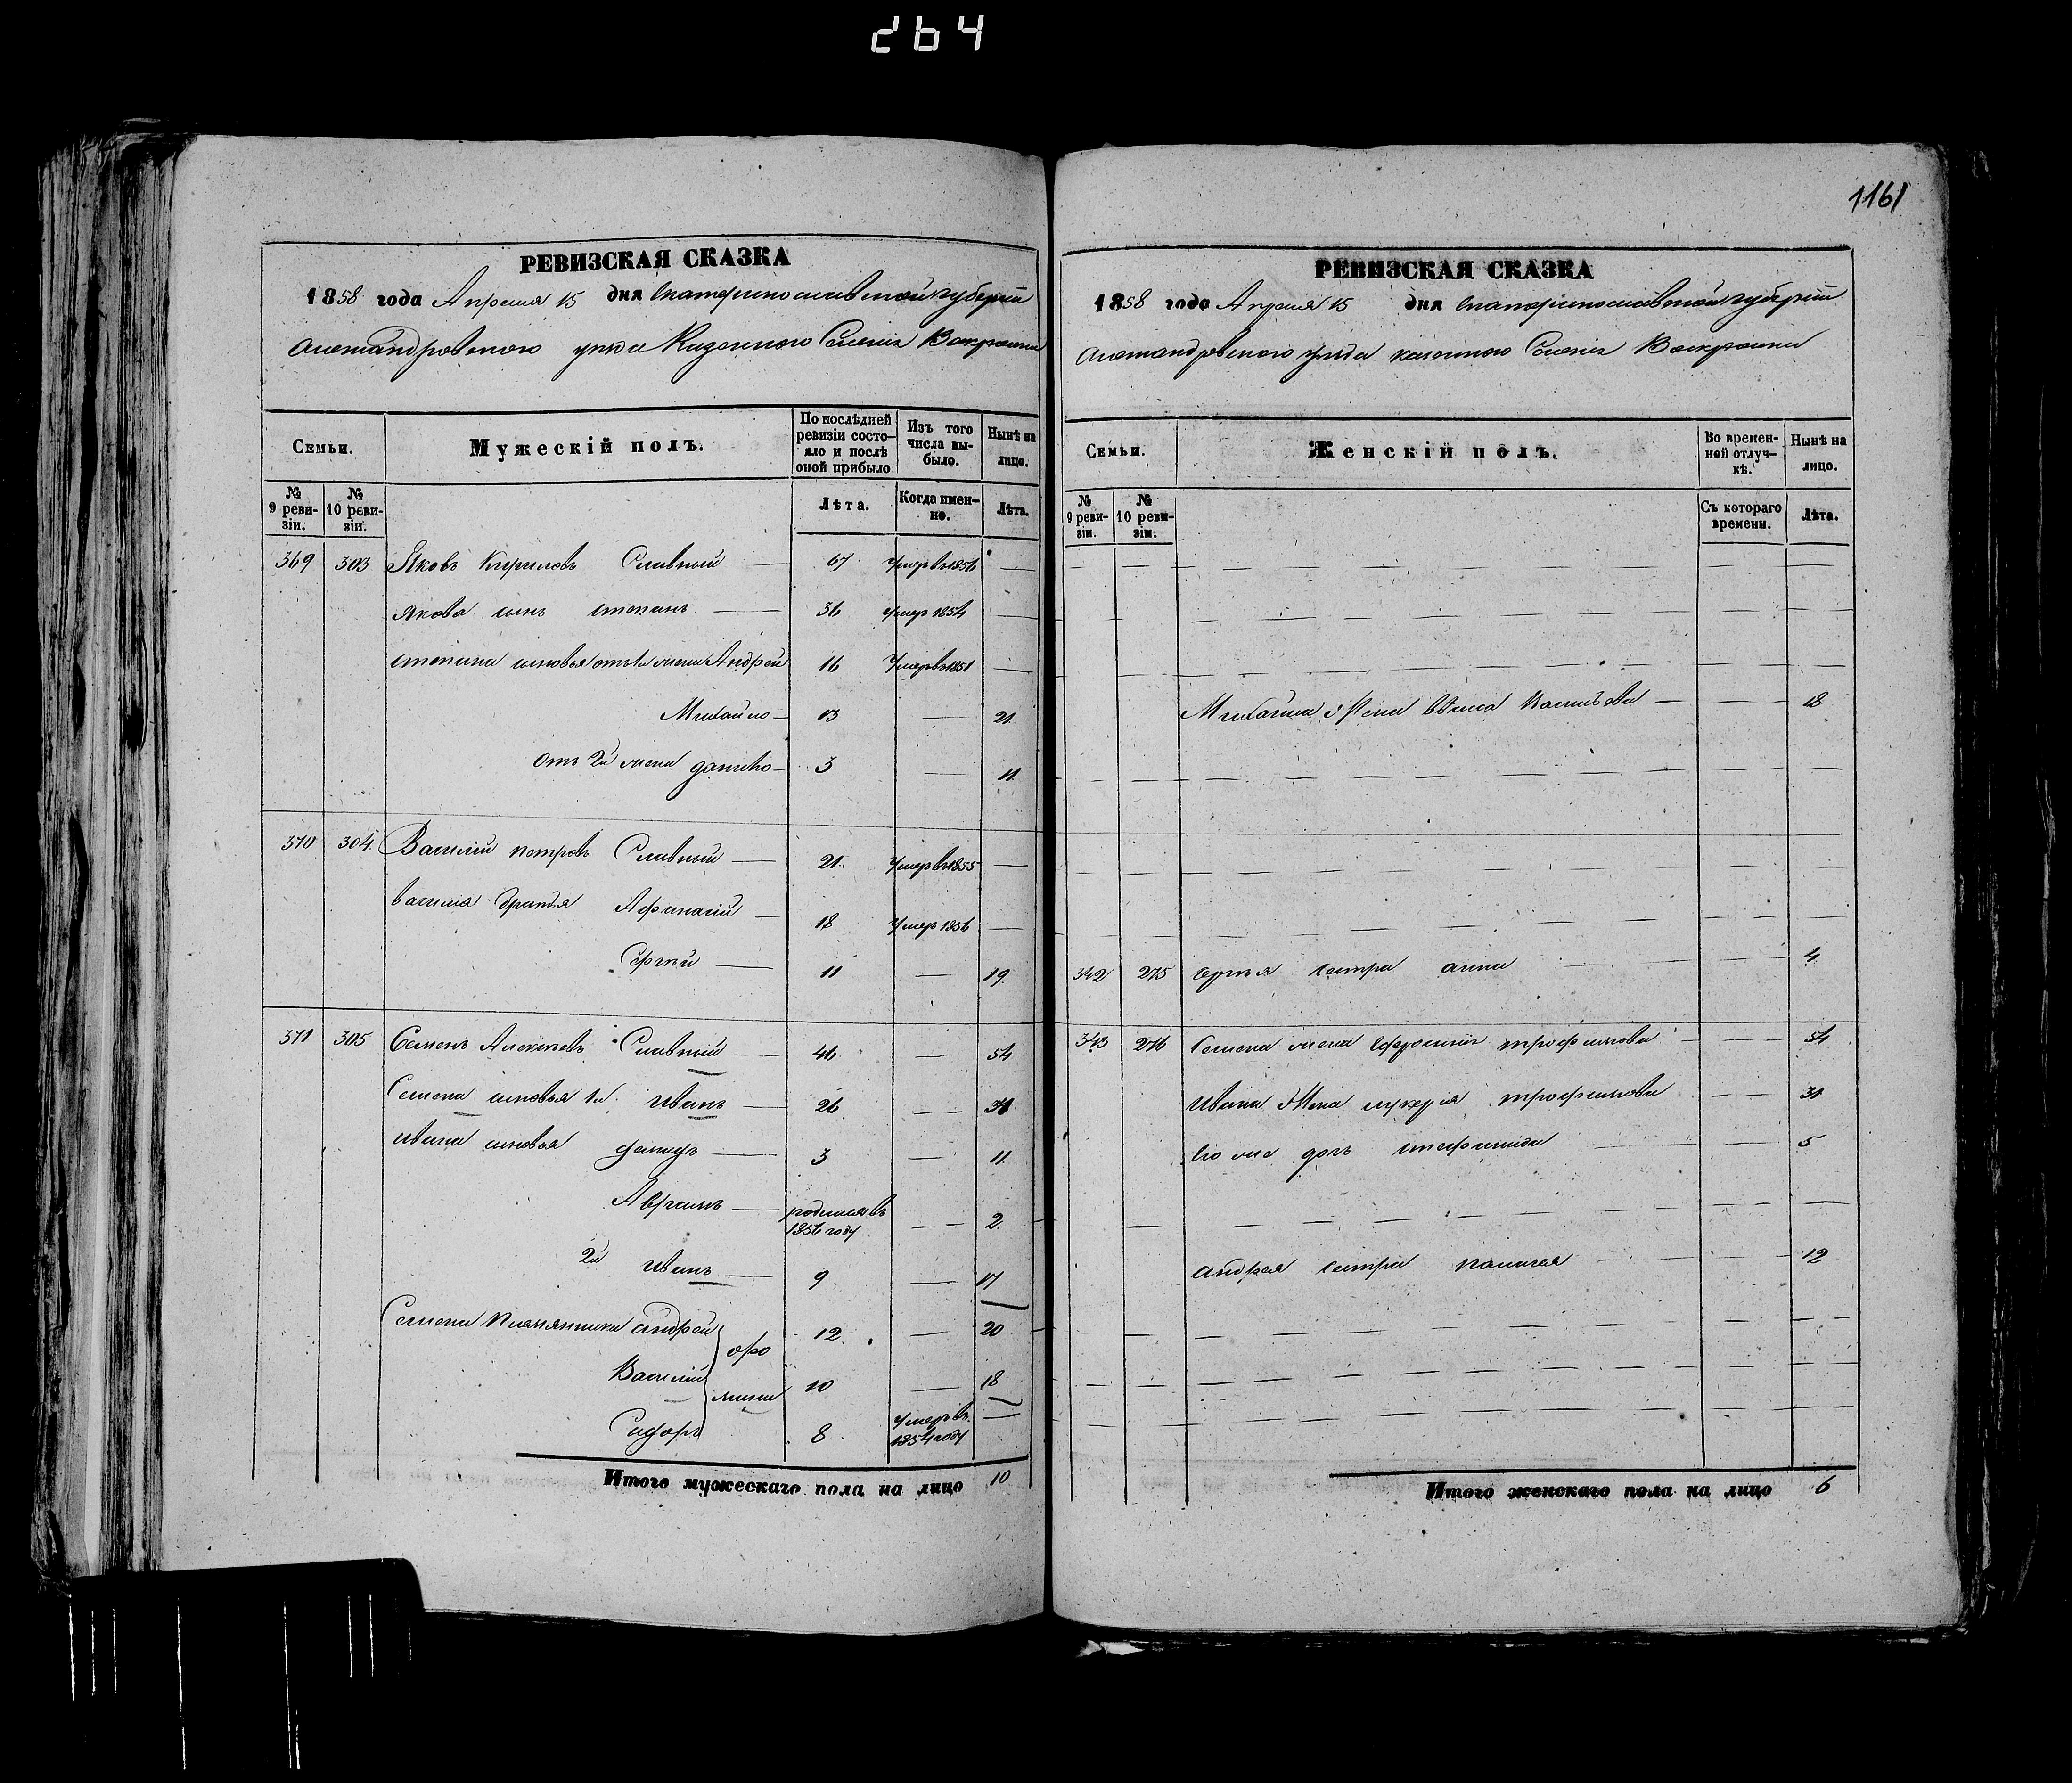 264
1161
РЕВИЗСКАЯ СКАЗКА
1858 года Апреля 15 дня Екатеринославской губернии
Александровского уезда Казенного Селения Воскресенки
Семьи.
Мужескій полъ.
По послѣдней ревизіи состояло и послѣ оной прибыло
Изъ того числа выбыло.
Нынѣ на лицо.
№ 9 ревизіи.
№ 10 ревизіи.
Лѣта.
Когда именно.
Лѣта.
369 303 Яковъ Кириловъ Славный — 67 Умеръ въ 1856 —
Якова сынъ степанъ — 36 умер 1854 —
степана сыновья отъ 1й жены Андрей 16 Умеръ въ 1851 —
Михайло — 13 — 21.
Отъ 2й жены данило — 3 — 11.
370 304. Василий петровъ Славный — 21. Умеръ въ 1855 —
василия братья Афанасий — 18 Умер 1856 —
Сергей — 11 — 19.
371 305 Семенъ Алексеевъ Славный — 46 — 54
Семена сыновья 1й иванъ — 26 — 34
ивана сыновья демидъ — 3 — 11.
Аврамъ — родился въ 1856 году — 2.
2й иванъ — 9 — 17
Семена племянники андрей 12. — 20
Василий 10 — 18
Сидоръ 8 умеръ въ 1854 году —
Итого мужескаго пола на лицо 10
РЕВИЗСКАЯ СКАЗКА
1858 года Апреля 15 дня Екатеринославской губернии
Александровского уезда казенного Селения Воскресенки
Семьи.
Женскій полъ.
Во временной отлучкѣ.
Нынѣ на лицо.
№ 9 ревизіи.
№ 10 ревизіи.
Съ котораго времени.
Лѣта.
Михайла Жена — 18
342 275 сергея сестра анна — 4.
343 276 Семена жена ефросиния трофимова — 54
ивана Жена лукерия трофимова — 31
его же дочь степанида — 5
андрея сестра пелагея — 12
Итого женскаго пола на лицо 6